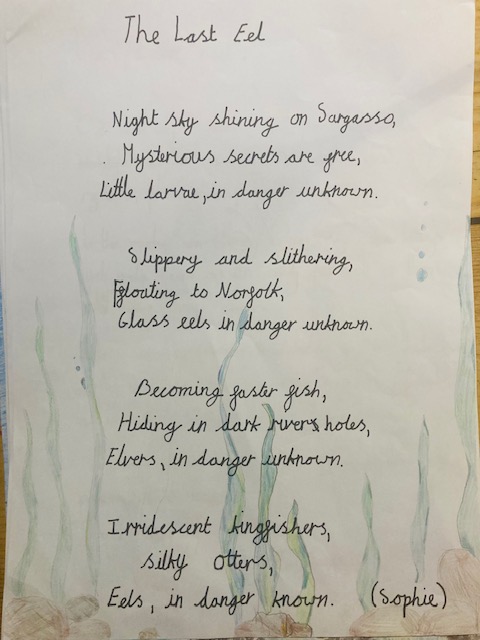 The Last Eel
Night sky shining on Sargasso,
Mysterious secrets are free,
Little larvae, in danger unknown.
Slippery and slithering,
Floating to Norfolk,
Glass eels in danger unknown.
Becoming faster fish,
Hiding in dark river holes,
Elvers, in danger unknown.
Irridescent kingfishers,
silky otters,
Eels, in danger known. (Sophie)